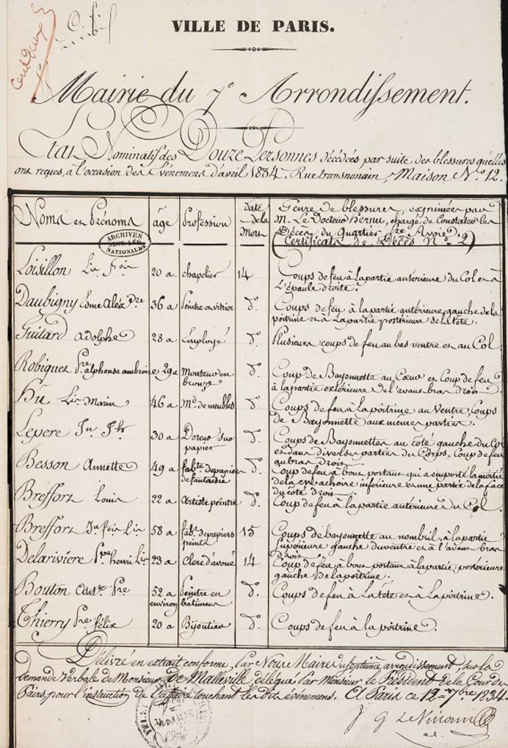 VILLE DE PARIS.
Mairie du 7e Arrondissement.
Etat Nominatif des Douze Personnes décédées par suite des blessures qu'elles
ont reçues, à l'occasion des Evènemens d'avril 1834. Rue transnonain, Maison No. 12.
Noms et Prénoms | âge | profession | date de la Mort | Genre de blessures exprimées par M. Le Docteur chargé de Constater les Décès du Quartier Ste Avoie (Certificats de Décès No. 2)
ARCHIVES NATIONALES
Loisillon | 20 a. | chapelier | 14 | Coups de feu à la partie antérieure du Col et à L'épaule droite.
Daubigny | 36 a | Peintre en vitrier | do. | Coups de feu à la partie antérieure gauche de la poitrine et à la partie postérieure de la tête.
Guitard adolphe | 28 a | Employé | do. | Plusieurs coups de feu au bas ventre et au Col.
Robiquet Pre. alphonse ambroise | 29 a | Monteur en bronzes | do. | Coup de Bayonnette au Cœur et Coup de feu à la partie extérieure de l'avant bras droit.
Hû | 46 a | Md. de meubles | do. | Coups de feu à la poitrine au Ventre, Coups de Bayonnette aux mêmes parties.
Lepere | 30 a | Doreur sur papier | do. | Coups de Bayonnettes au côté gauche du Col et en diverses parties du Corps, Coup de feu au bras droit.
Besson Annette | 49 a | fabte. de papier de fantaisie | do. | Coup de feu à bout portant qui a emporté la moitié de la mâchoire inférieure et une partie de la face du côté droit.
Breffort Louis | 22 a | Artiste peintre | do. | Coup de feu à la partie antérieure du Col.
Breffort | 58 a | fabt. de papiers peints | 15 | Coups de bayonnette au nombril, à la partie inférieure gauche du ventre et à l'avant bras droit.
Delariviere henri | 23 a | Clerc d'avoué | 14 | Coup de feu à bout portant à la partie postérieure gauche de la poitrine.
Bouton | 52 a environ | Peintre en bâtiment | do. | Coups de feu à la tête et à la Poitrine.
Thierry félix | 20 a | Bijoutier | do. | Coups de feu à la poitrine.
Délivré en extrait conforme, par Nous Maire du septième arrondissement, sur la
demande Verbale de Monsieur de Malleville délégué par Monsieur le Président de la Cour des
Pairs, pour l'instruction de l'affaire touchant les dits évènemens. Et Paris ce 12 7bre 1834.